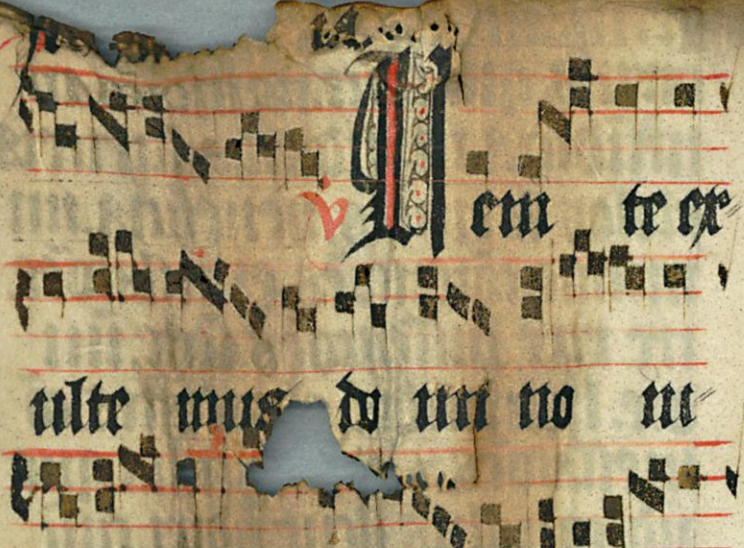 v Veni te ex
ulte mus do mi no iu